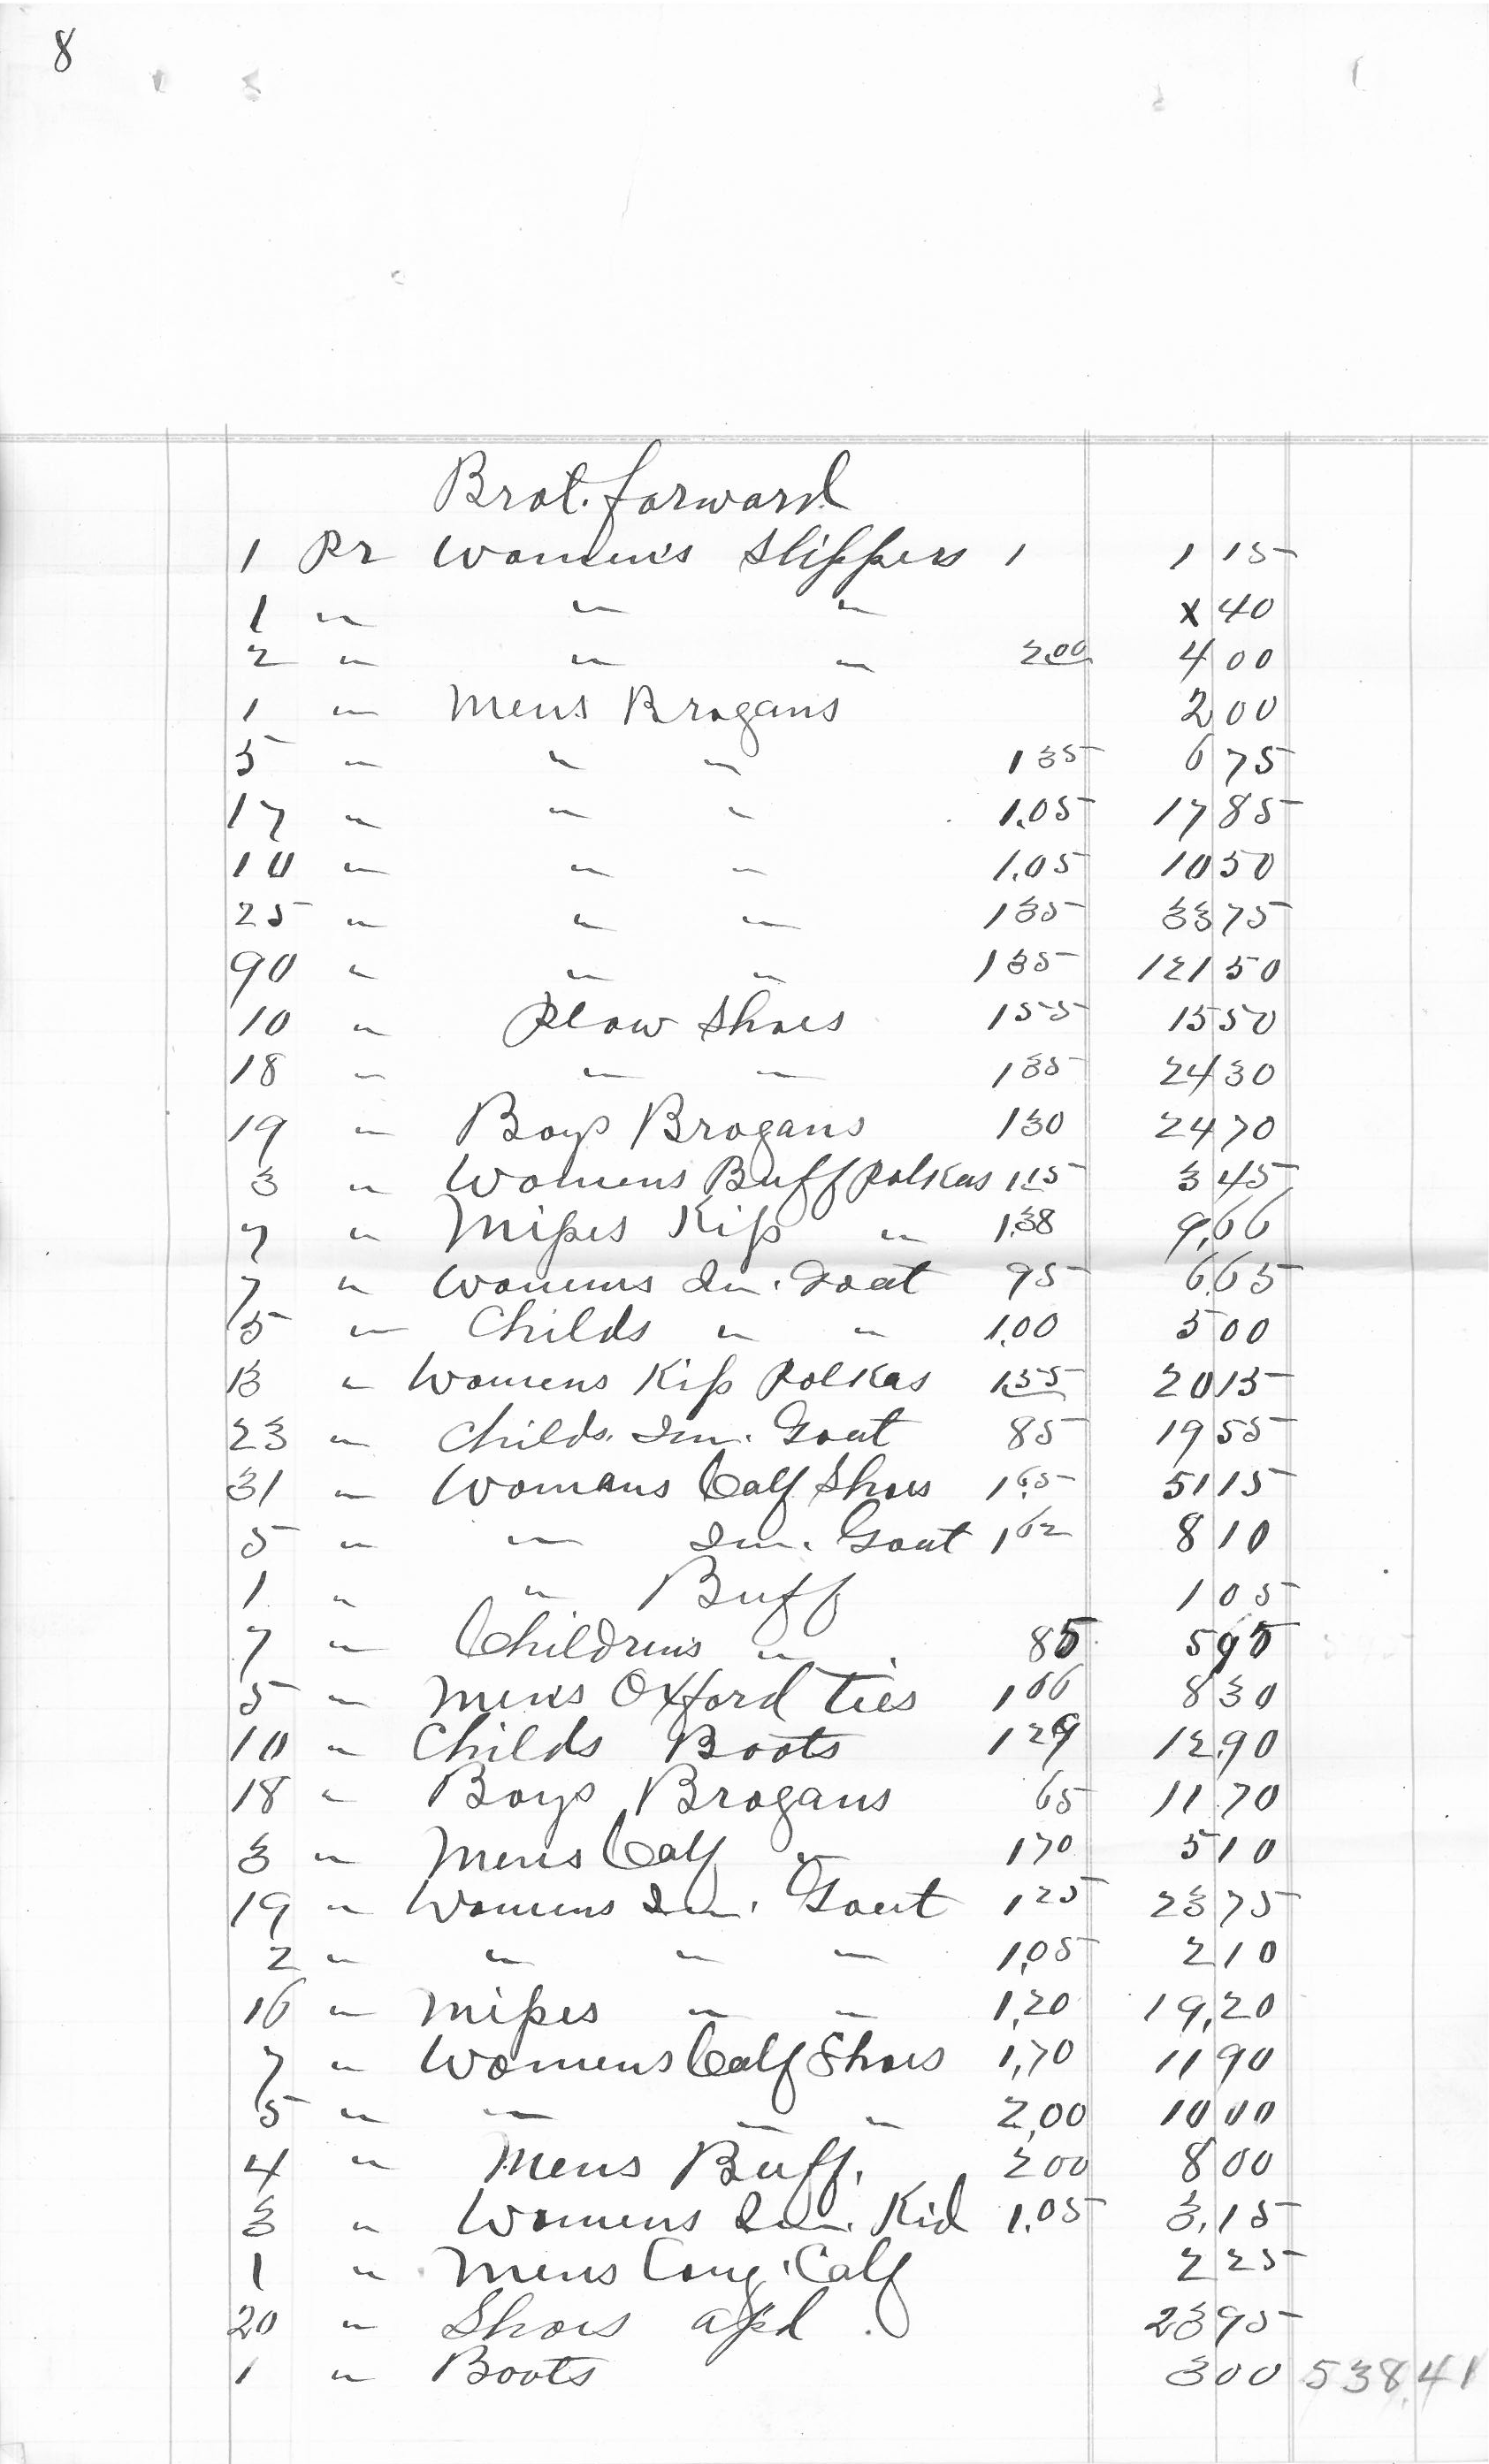 8
Brot. forward
1 Pr Women's Slippers 1 1 15
1 " " " x 40
2 " " " 2.00 4 00
1 " Mens Brogans 2 00
5 " " " 1 35 6 75
17 " " " 1.05 17 85
10 " " " 1.05 10 50
25 " " " 1 35 33 75
90 " " " 1 35 121 50
10 " Plow Shoes 1 55 15 50
18 " " " 1 35 24 30
19 " Boys Brogans 1 30 24 70
3 " Womens Buff Polkas 1.15 3 45
7 " Misses Kip " 1.38 9.66
7 " Womens Im. Goat 95 6.65
5 " Childs " " 1.00 5 00
13 " Womens Kip Polkas 1.55 20 15
23 " Childs. Im. Goat 85 19 55
31 " Womans Calf Shoes 1.65 51 15
5 " " Im. Goat 1 62 8 10
1 " " Buff 1 05
7 " Childrens " 85 5 95
5 " Mens Oxford Ties 1 66 8 30
10 " Childs Boots 1 29 12.90
18 " Boys Brogans 65 11 70
3 " Mens Calf " 1 70 5 10
19 " Womens Im. Goat 1 25 23 75
2 " " " " 1.05 2 10
16 " Misses " " 1.20 19.20
7 " Womens Calf Shoes 1.70 11 90
5 " " " " 2.00 10 00
4 " Mens Buff. 2 00 8 00
3 " Womens Im. Kid 1.05 3.15
1 " Mens Cong. Calf 2 25
20 " Shoes as'd. 23 95
1 " Boots 3 00 538.41